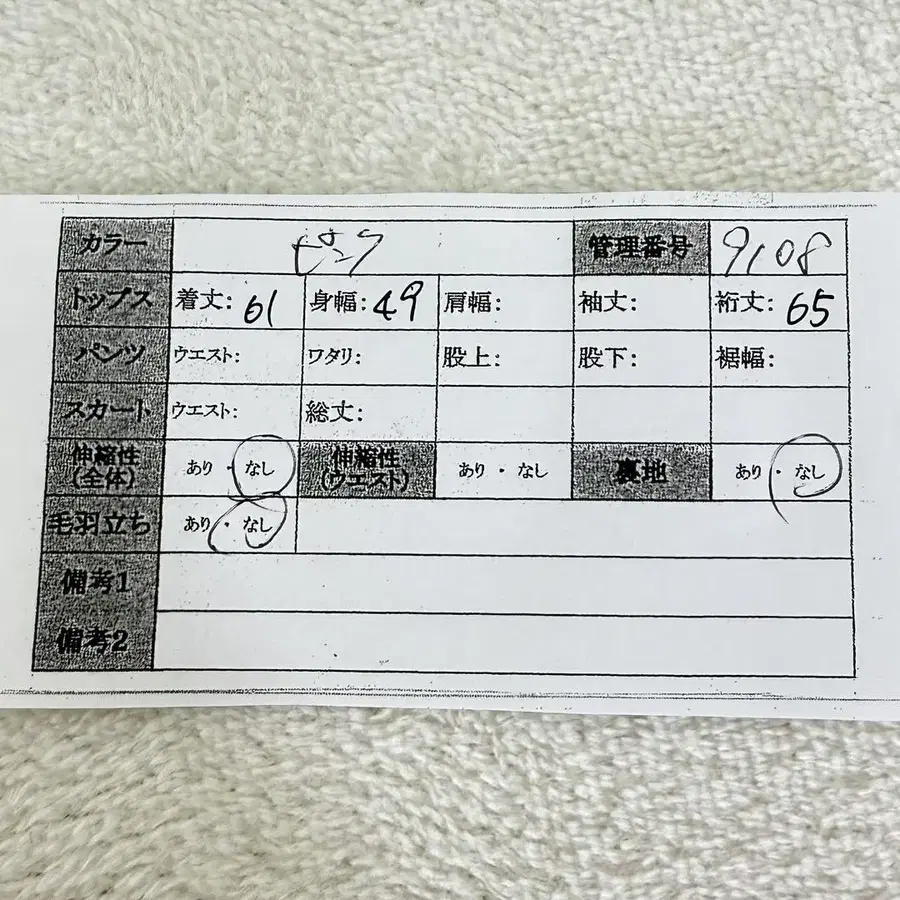 カラー ピンク 管理番号 9108
トップス 着丈: 61 身幅: 49 肩幅: 袖丈: 裄丈: 65
パンツ ウエスト: ワタリ: 股上: 股下: 裾幅:
スカート ウエスト: 総丈:
伸縮性(全体) あり・なし 伸縮性(ウエスト) あり・なし 裏地 あり・なし
毛羽立ち あり・なし
備考1
備考2